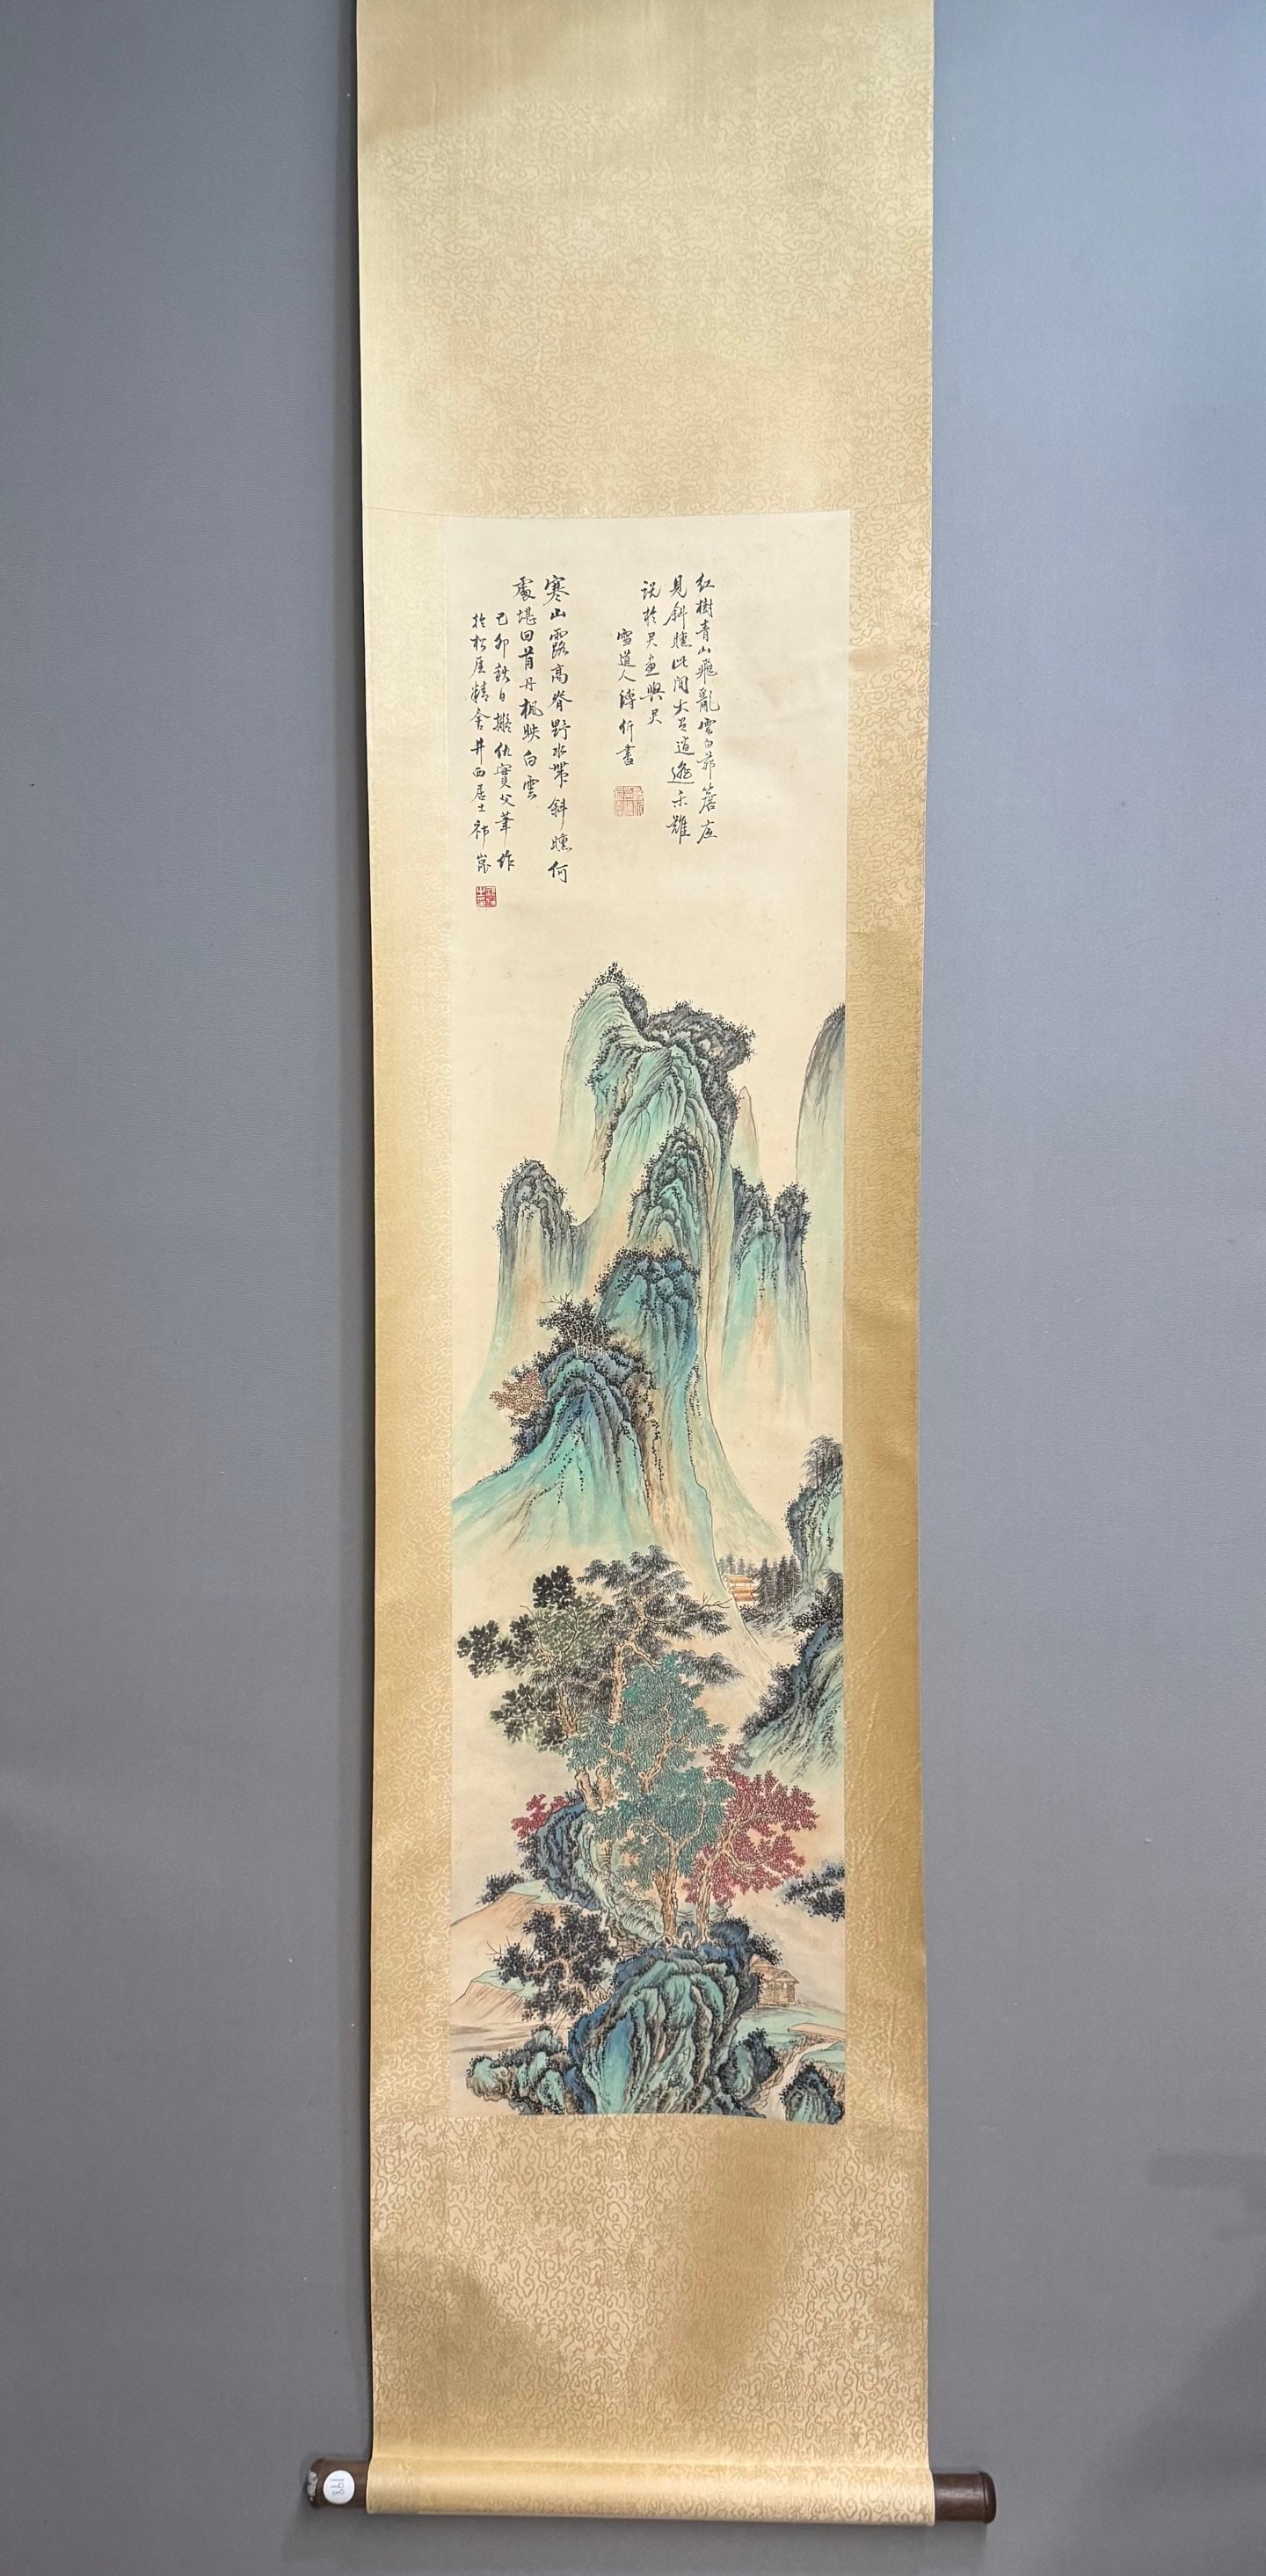 紅樹青山飛亂雲白茆簷底
見斜曛此間大有逍遙樂難
説於君畫與君
雪道人溥伒書
寒山露高脊野水帶斜曛何
處堪回首丹楓映白雲
己卯秋日擬仇實父筆作
於松厓精舍井西居士祁崑
193